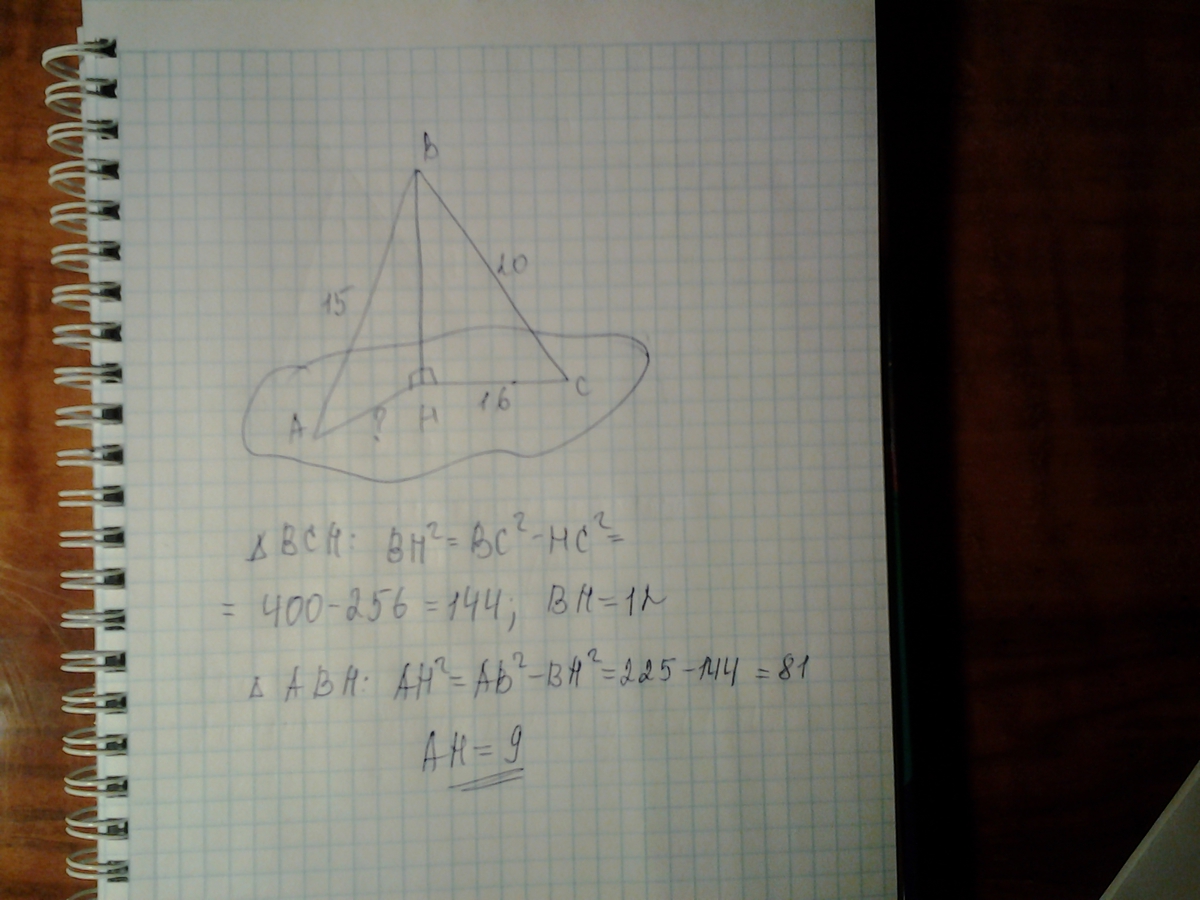 B
15
20
A
?
H
16
C
Δ BCH: BH² = BC² - HC² =
= 400 - 256 = 144; BH = 12
Δ ABH: AH² = AB² - BH² = 225 - 144 = 81
AH = 9